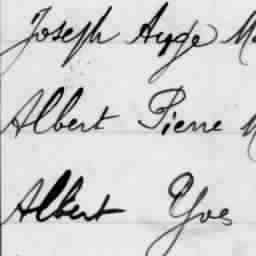 Joseph Ange M
Albert Pierre M
Albert Yves